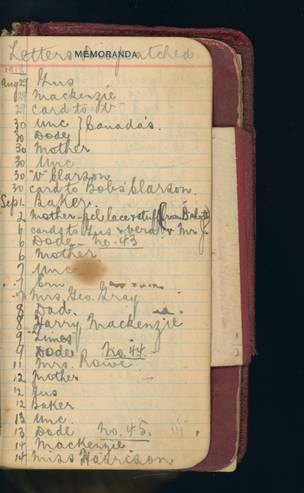 MEMORANDA
Letters Dispatched
Aug 27 Gus
29 Mackenzie
29 card to "V"
30 Unc } Canada's.
30 Dode
30 Mother
30 Unc
30 "V" Clarson
30 card to Bobs Clarson.
Sept 1. Baker.
2 Mother - lace & stuff (from
6 cards to Gus & Vera & Mr J.
6 Dode No. 43
6 Mother
7 Unc
7 Ern
7 Mrs. Geo. Gray
8 Dad.
8 Harry Mackenzie
9 "Times"
9 Dode No. 44
11 Mrs. Rowe
12 Mother
12 Gus
12 Baker
13 Unc.
13 Dode No. 45.
14 Mackenzie
14 Miss Harrison